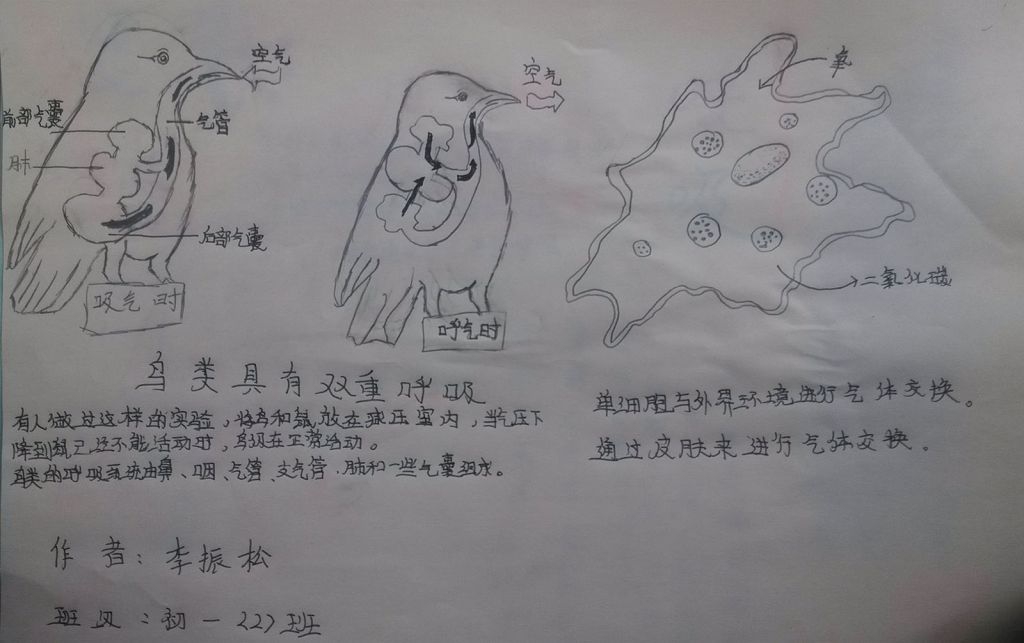 空气
前部气囊
气管
肺
后部气囊
吸气时
空气
呼气时
氧
二氧化碳
鸟类具有双重呼吸
有人做过这样的实验，将鸟和鼠放在球压室内，当气压下
降到鼠已还不能活动时，鸟现在正常活动。
的呼吸系统由鼻、咽、气管、支气管、肺和一些气囊组成。
单细胞与外界环境进行气体交换。
通过皮肤来进行气体交换。
作者：李振松
班级：初一（2）班